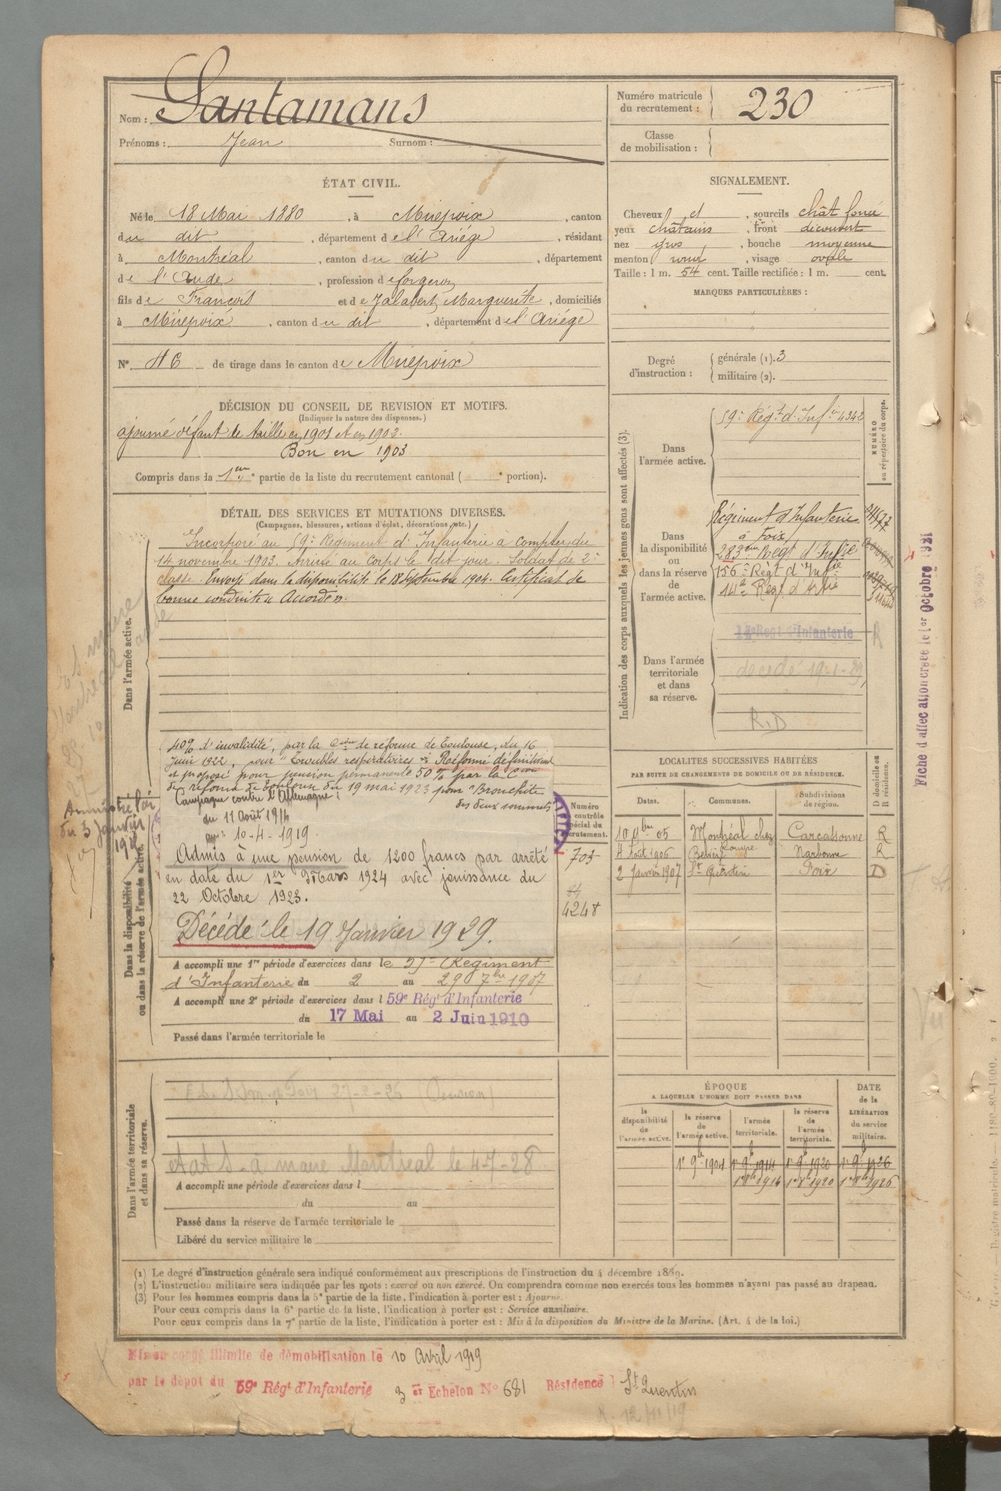 Nom : Santamans
Prénoms : Jean Surnom :
Numéro matricule du recrutement : 230
Classe de mobilisation :
ÉTAT CIVIL.
Né le 18 Mai 1880, à Mirepoix, canton
du dit, département de l'Ariége, résidant
à Montréal, canton du dit, département
de l'Aude, profession de forgeron
fils de François et de Jalabert Marguerite, domiciliés
à Mirepoix, canton du dit, département de l'Ariége
N° 46 de tirage dans le canton de Mirepoix
SIGNALEMENT.
Cheveux et, sourcils chât foncé
yeux châtains, front découvert
nez gros, bouche moyenne
menton rond, visage ovale
Taille : 1 m. 54 cent. Taille rectifiée : 1 m. cent.
MARQUES PARTICULIÈRES :
Degré d'instruction : générale (1). 3
militaire (2).
DÉCISION DU CONSEIL DE REVISION ET MOTIFS.
(Indiquer la nature des dispenses.)
ajourné défaut de taille en 1901 et en 1902.
Bon en 1903
Compris dans la 1ère partie de la liste du recrutement cantonal ( portion).
DÉTAIL DES SERVICES ET MUTATIONS DIVERSES.
(Campagnes, blessures, actions d'éclat, décorations, etc.)
Dans l'armée active.
Incorporé au 59e Régiment d'Infanterie à compter du
14 novembre 1903. Arrivé au corps le dit jour. Soldat de 2e
classe. Envoyé dans la disponibilité le 18 Septembre 1904. Certificat de
bonne conduite Accordé.
Dans la disponibilité ou dans la réserve de l'armée active.
40% d'invalidité, par la Con de réforme de Toulouse, du 16
Juin 1922, pour "Troubles respiratoires" Réformé définitivement
et proposé pour pension permanente 50% par la Con
de réforme de Toulouse du 19 mai 1923 pour "Bronchite
des deux sommets
Campagne contre l'Allemagne :
du 11 Août 1914
au 10-4-1919
Admis à une pension de 1200 francs par arrêté
en date du 1er Mars 1924 avec jouissance du
22 Octobre 1923.
Décédé le 19 Janvier 1929.
A accompli une 1re période d'exercices dans le Régiment
d'Infanterie du 2 au 29 7bre 1907
A accompli une 2e période d'exercices dans l 59e Régt d'Infanterie
du 17 Mai au 2 Juin 1910
Passé dans l'armée territoriale le
Numéro contrôle spécial du recrutement.
703
4248
Dans l'armée territoriale et dans sa réserve.
27-2-26
a maire Montréal le 4-7-28
A accompli une période d'exercices dans l
du au
Passé dans la réserve de l'armée territoriale le
Libéré du service militaire le
Indication des corps auxquels les jeunes gens sont affectés (3).
NUMÉRO au répertoire du corps.
Dans l'armée active.
59e Régt d'Infie 4342
Dans la disponibilité ou dans la réserve de l'armée active.
Régiment d'Infanterie
à Foix
283me Régt d'Infie
156e Régt d'Infie
14e Régt d'Artie
Dans l'armée territoriale et dans sa réserve.
14e Régt d'Infanterie
décédé 19-1-29
R.D
LOCALITÉS SUCCESSIVES HABITÉES
PAR SUITE DE CHANGEMENTS DE DOMICILE OU DE RÉSIDENCE.
Dates. Communes. Subdivisions de région. D domicile ou R résidence.
10 Xbre 05 Montréal chez Carcassonne R
4 Août 1906 Narbonne R
2 Janvier 1907 St Quentin Foix D
ÉPOQUE
A LAQUELLE L'HOMME DOIT PASSER DANS
la disponibilité de l'armée active. la réserve de l'armée active. l'armée territoriale. la réserve de l'armée territoriale.
DATE de la LIBÉRATION du service militaire.
1er 9bre 1904 1er 9bre 1914 1er 9bre 1920 1er 9bre 1926
Fiche d'affectation créée le 1er Octobre 1921
(1) Le degré d'instruction générale sera indiqué conformément aux prescriptions de l'instruction du 4 décembre 1889.
(2) L'instruction militaire sera indiquée par les mots : exercé ou non exercé. On comprendra comme non exercés tous les hommes n'ayant pas passé au drapeau.
(3) Pour les hommes compris dans la 5e partie de la liste, l'indication à porter est : Ajourné.
Pour ceux compris dans la 6e partie de la liste, l'indication à porter est : Service auxiliaire.
Pour ceux compris dans la 7e partie de la liste, l'indication à porter est : Mis à la disposition du Ministre de la Marine. (Art. 4 de la loi.)
Mis en congé illimité de démobilisation le 10 Avril 1919
par le dépôt du 59e Régt d'Infanterie 3 er Echelon No 681 Résidence St Quentin